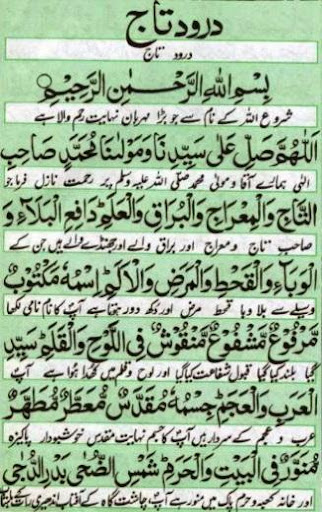 درود تاج
درود تاج
بِسْمِ اللهِ الرَّحْمٰنِ الرَّحِيْمِ
شروع اللہ کے نام سے جو بڑا مہربان نہایت رحم والا ہے
اَللّٰهُمَّ صَلِّ عَلٰى سَيِّدِنَا وَمَوْلٰنَا مُحَمَّدٍ صَاحِبِ
الٰہی ہمارے آقا و مولیٰ محمد صلی اللہ علیہ وسلم پر رحمت نازل فرما جو
التَّاجِ وَالْمِعْرَاجِ وَالْبُرَاقِ وَالْعَلَمِ دَافِعِ الْبَلَاۤءِ وَ
صاحب تاج و معراج اور براق والے اور جھنڈے والے ہیں جن کے
الْوَبَاۤءِ وَالْقَحْطِ وَالْمَرَضِ وَالْاَلَمِ اِسْمُهٗ مَكْتُوْبٌ
وسیلے سے بلا وبا قحط مرض اور دکھ دور ہوتا ہے آپ کا نام نامی لکھا
مَّرْفُوْعٌ مَّشْفُوْعٌ مَّنْقُوْشٌ فِي اللَّوْحِ وَالْقَلَمِ سَيِّدِ
گیا بلند کیا گیا قبول شفاعت کیا گیا اور لوح و قلم میں کھدا ہوا ہے آپ
الْعَرَبِ وَالْعَجَمِ جِسْمُهٗ مُقَدَّسٌ مُّعَطَّرٌ مُّطَهَّرٌ
عرب و عجم کے سردار ہیں آپ کا جسم نہایت مقدس خوشبودار پاکیزہ
مُّنَوَّرٌ فِي الْبَيْتِ وَالْحَرَمِ شَمْسِ الضُّحٰى بَدْرِ الدُّجٰى
اور خانہ کعبہ و حرم پاک میں منور ہے آپ چاشت گاہ کے آفتاب اندھیری رات کے